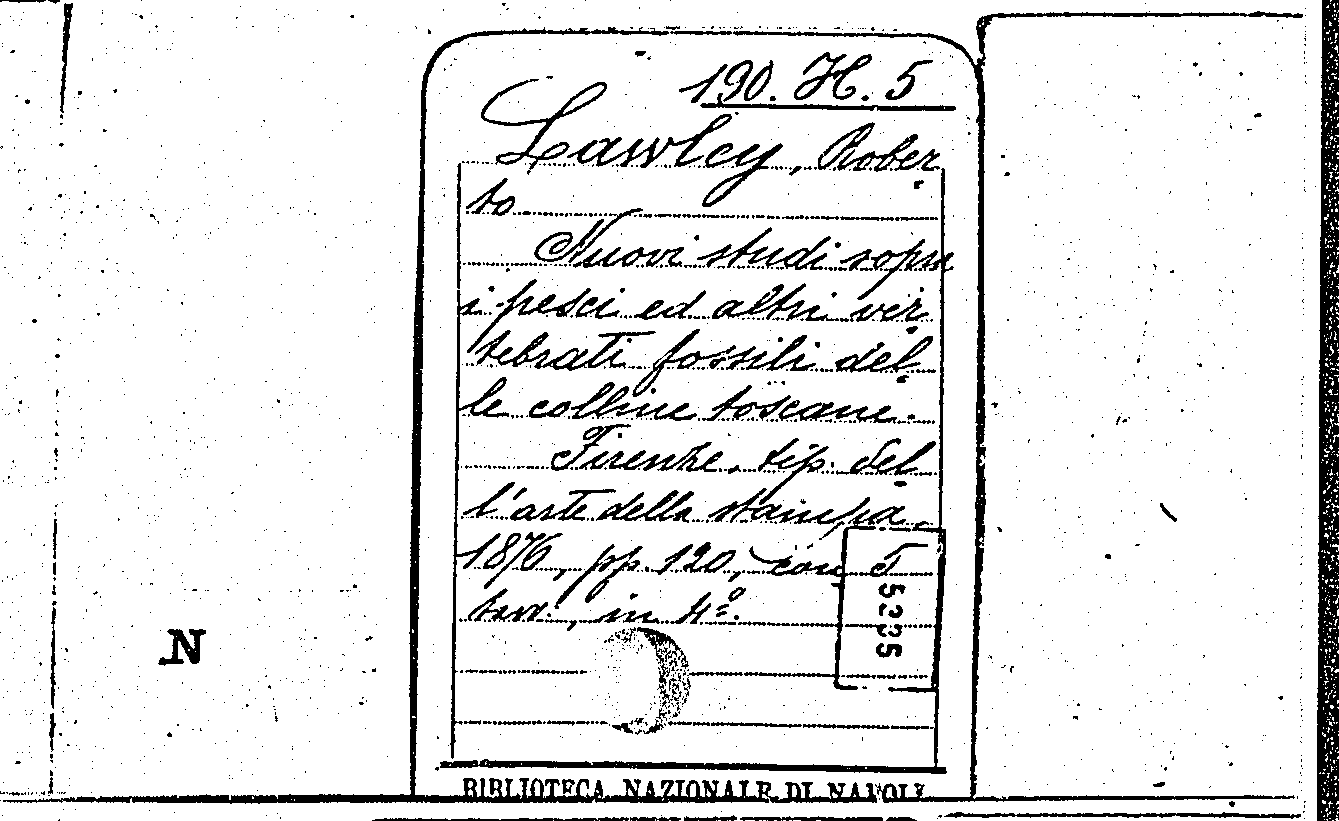 190. H. 5
Lawley, Rober
to
Nuovi studi sopra
i pesci ed altri ver
tebrati fossili del
le colline toscane.
Firenze, tip. del
l'arte della stampa.
1876, pp. 120, con 5
tav., in 4º.
N
BIBLIOTECA NAZIONALE DI NAPOLI